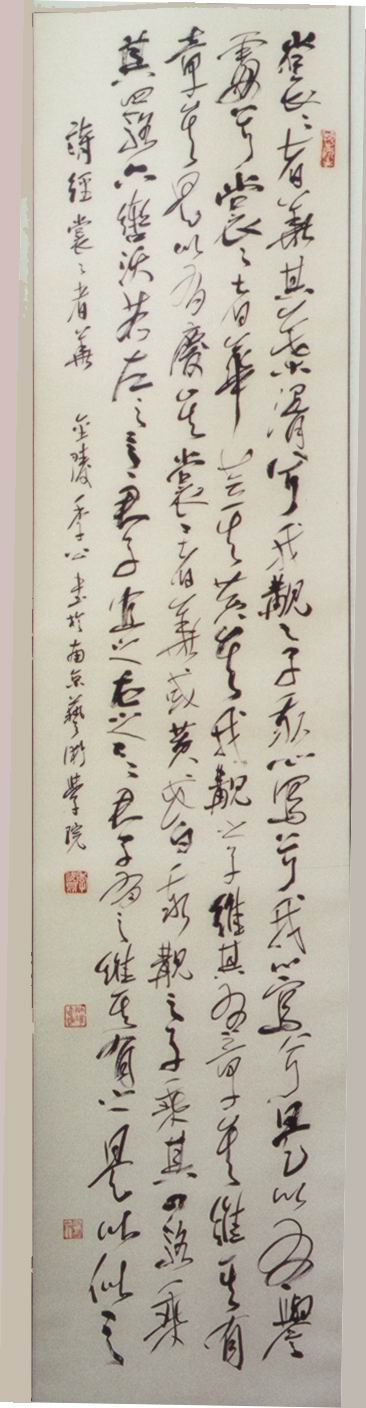 裳〻者華其葉湑兮我覯之子我心寫兮我心寫兮是以有譽
處兮裳〻者華芸其黃矣我覯之子維其有章矣維其有
章矣是以有慶矣裳〻者華或黃或白我覯之子乘其四駱乘
其四駱六轡沃若左之〻〻君子宜之右之〻〻君子有之維其有之是以似之
詩經裳〻者華 金陵季心書於南京藝術學院